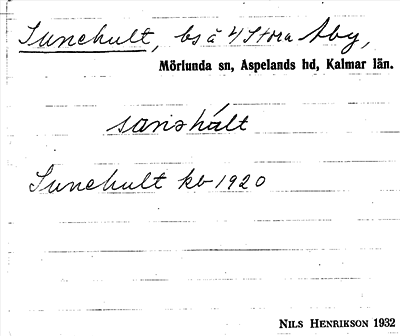 Sunehult, bs å 4 Stora Åby,
Mörlunda sn, Aspelands hd, Kalmar län.
Sunehult kb 1920
NILS HENRIKSON 1932